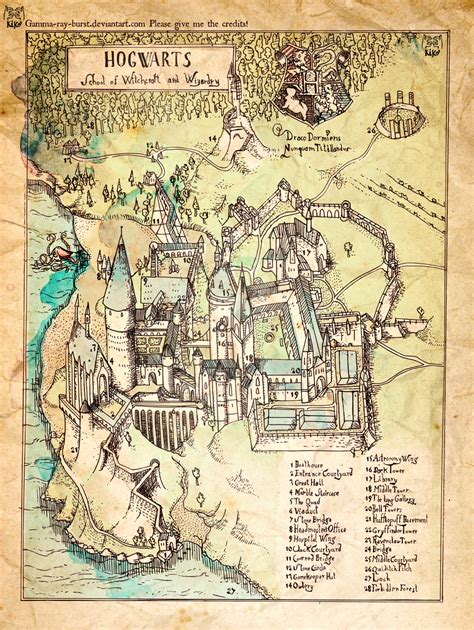 Gamma-ray-burst.deviantart.com Please give me the credits!
KiKo
KiKo
HOGWARTS
School of Witchcraft and Wizardry
Draco Dormiens
Nunquam Titillandus
26
14
13
12
28
1 Boathouse
2 Entrance Courtyard
3 Great Hall
4 Marble Staircase
5 The Quad
6 Viaduct
Bridge
8 Headmaster Office
9 Hospital Wing
10 Clock Courtyard
11 Covered Bridge
12 Stone Circle
13 Gamekeeper Hut
14 Owlery
15 Astronomy Wing
16 Dark Tower
17 Library
18 Middle Tower
19 The Long Gallery
20 Bell Towers
21 Hufflepuff Basement
22 Gryffindor Tower
23 Ravenclaw Tower
24 Bridge
25 Middle Courtyard
26 Quidditch Pitch
27 Loch
28 Forbidden Forest
27